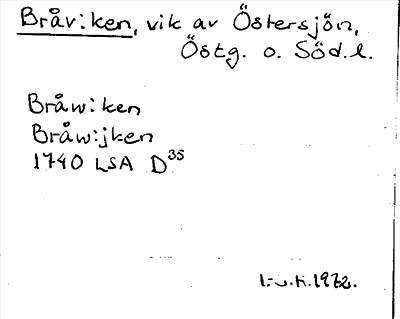 Bråviken, vik av Östersjön,
Östg. o. Söd.l.
Bråwiken
Bråwijken
1740 LSA D35
1972.